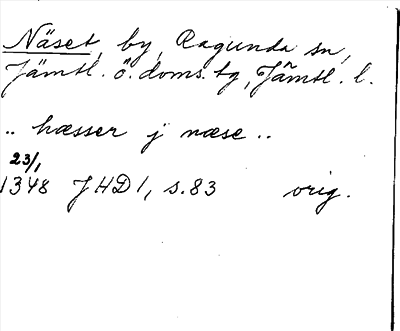 Näset, by, Ragunda sn,
Jämtl. ö. doms. tg, Jämtl. l.
.. hæsser j næse ..
23/1
1348 JHD 1, s. 83 orig.